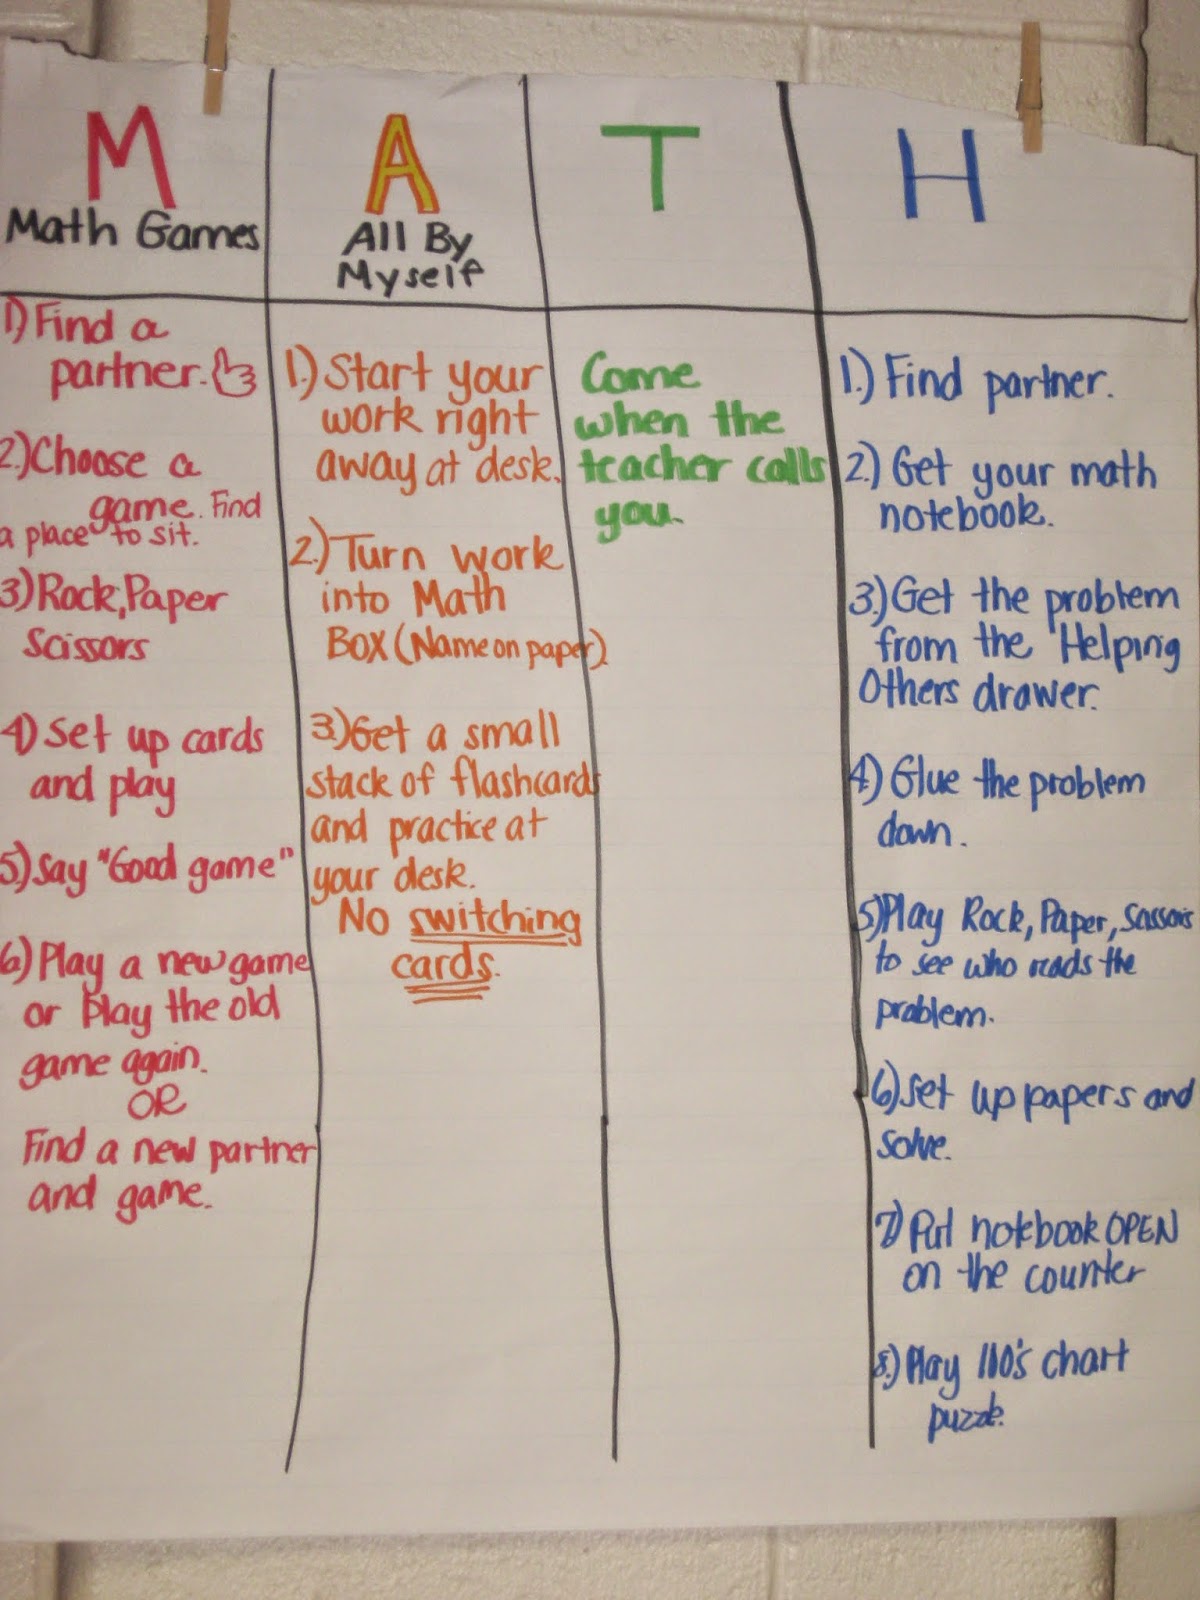 M
Math Games
1) Find a
partner.
2.) Choose a
game. Find
a place to sit.
3) Rock, Paper
Scissors
4) Set up cards
and play
5) Say "Good game"
6) Play a new game
or Play the old
game again.
OR
Find a new partner
and game.
A
All By
Myself
1.) Start your
work right
away at desk.
2.) Turn work
into Math
BOX (Name on paper)
3.) Get a small
stack of flashcards
and practice at
your desk.
No switching
cards.
T
Come
when the
teacher calls
you.
H
1.) Find partner.
2.) Get your math
notebook.
3.) Get the problem
from the Helping
Others drawer.
4) Glue the problem
down.
5) Play Rock, Paper, Scissors
to see who reads the
problem.
6) Set up papers and
solve.
7) Put notebook OPEN
on the counter
8.) Play 110's chart
puzzle.